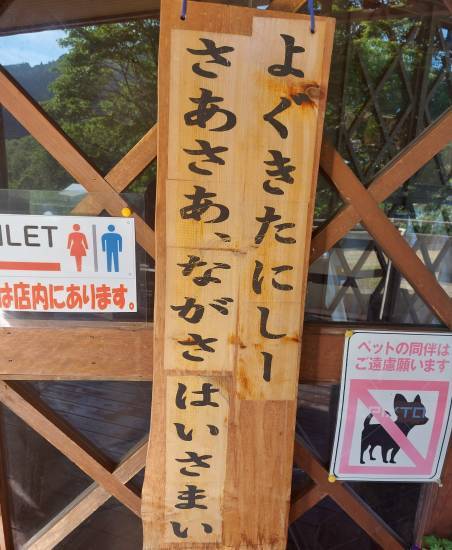 よぐきたにしー
さあさあ、ながさはいさまい
ILET
は店内にあります。
ペットの同伴は
ご遠慮願います
PIXTO